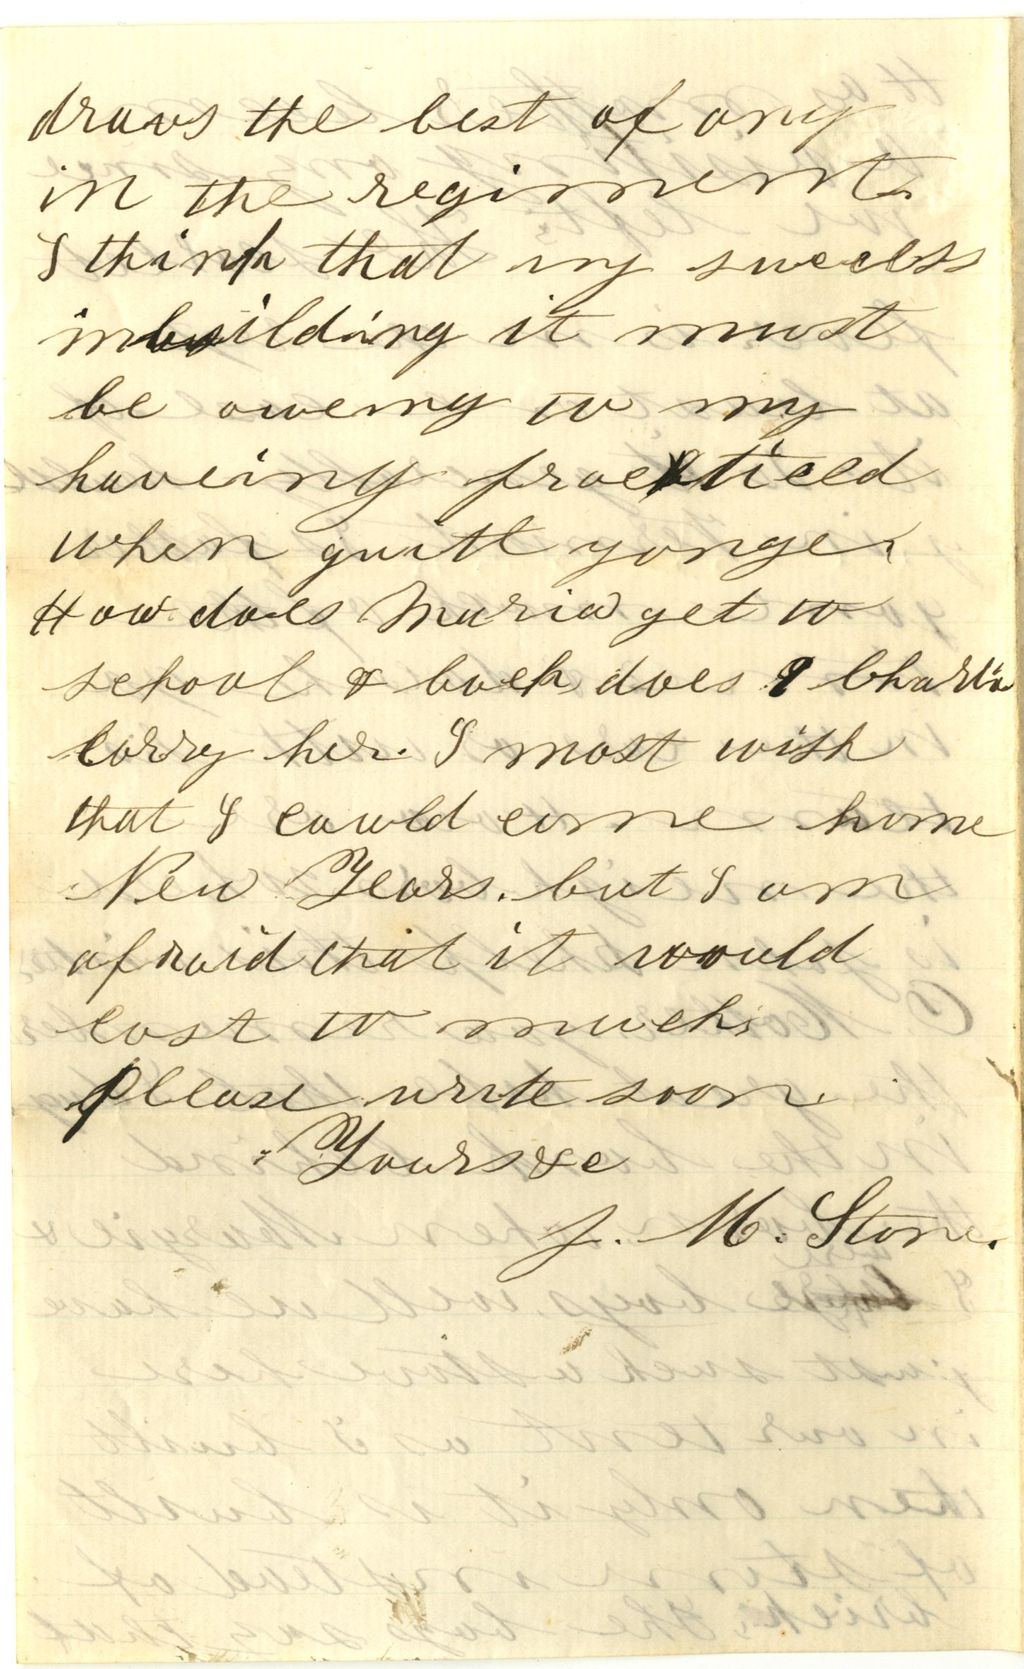 draws the best of any
in the regiment.
I think that my success
in building it must
be oweing to my
haveing practiced
when quitt yonge.
How does Maria get to
school & back does Charlie
carry her. I most wish
that I could come home
New Years. but I am
afraid that it would
cost to much.
Please write soon.
Yours &c
J. M. Stone.